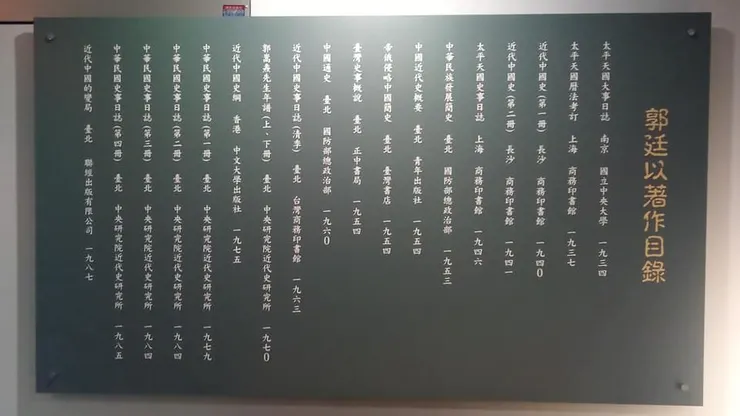 郭廷以著作目錄
太平天國大事日誌　南京　國立中央大學　一九三四
太平天國曆法考訂　上海　商務印書館　一九三七
近代中國史(第一冊)　長沙　商務印書館　一九四0
近代中國史(第二冊)　長沙　商務印書館　一九四一
太平天國史事日誌　上海　商務印書館　一九四六
中華民族發展簡史　臺北　國防部總政治部　一九五三
中國近代史概要　臺北　青年出版社　一九五四
帝俄侵略中國簡史　臺北　臺灣書店　一九五四
臺灣史事概說　臺北　正中書局　一九五四
中國通史　臺北　國防部總政治部　一九六0
近代中國史事日誌(清季)　臺北　台灣商務印書館　一九六三
郭嵩燾先生年譜(上、下冊)　臺北　中央研究院近代史研究所　一九七0
近代中國史綱　香港　中文大學出版社　一九七五
中華民國史事日誌(第一冊)　臺北　中央研究院近代史研究所　一九七九
中華民國史事日誌(第二冊)　臺北　中央研究院近代史研究所　一九八四
中華民國史事日誌(第三冊)　臺北　中央研究院近代史研究所　一九八四
中華民國史事日誌(第四冊)　臺北　中央研究院近代史研究所　一九八五
近代中國的變局　臺北　聯經出版有限公司　一九八七